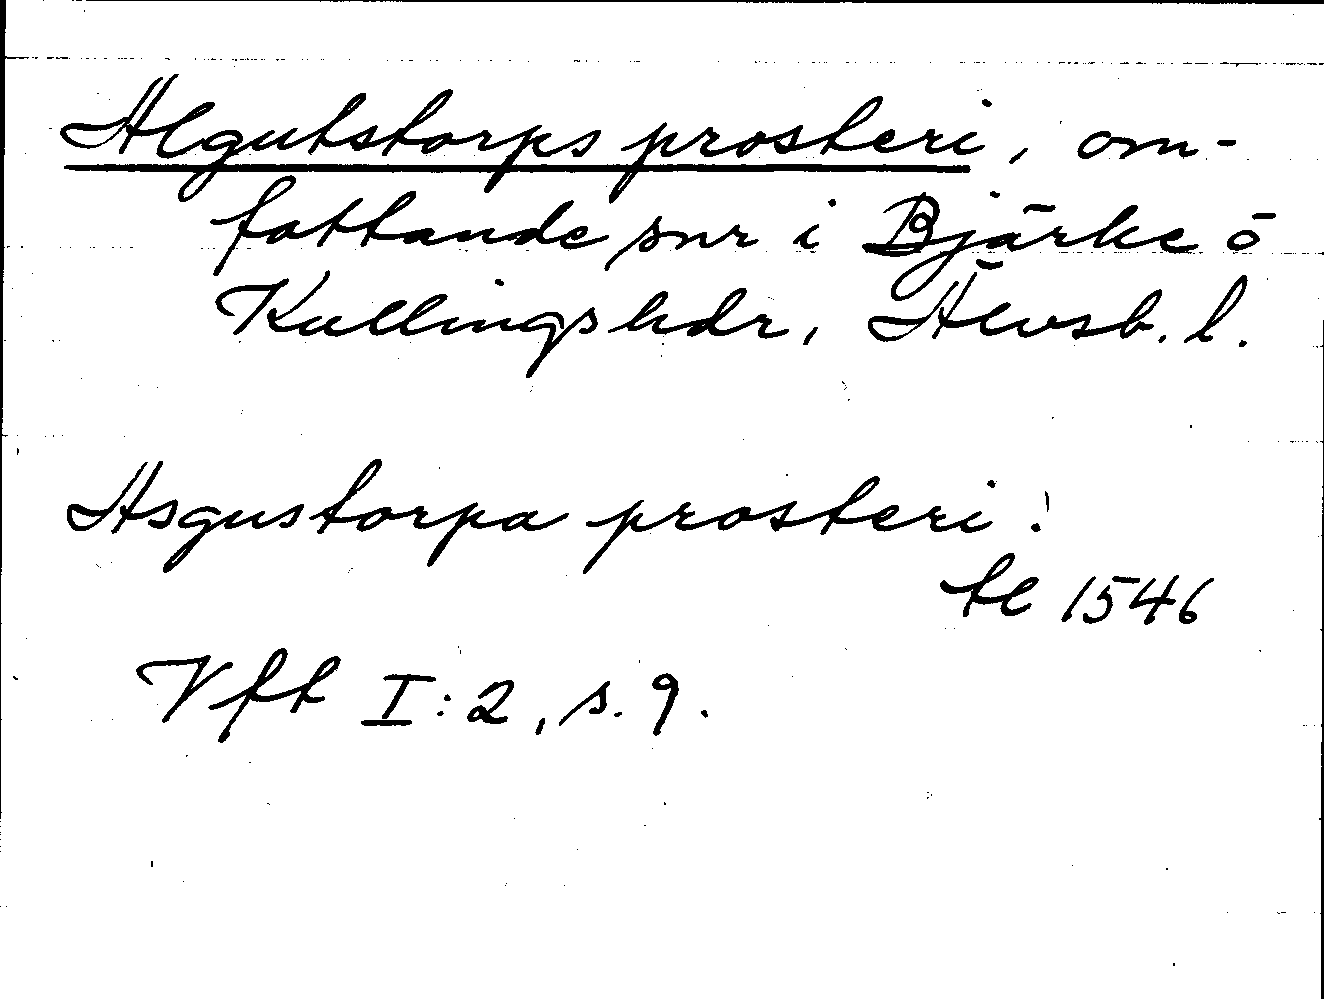 Algutstorps prosteri, om-
fattande snr i Bjärke o
Kullingshdr, Älvsb. l.
Asgustorpa prosteri!
tl 1546
Vft I:2, s. 9.